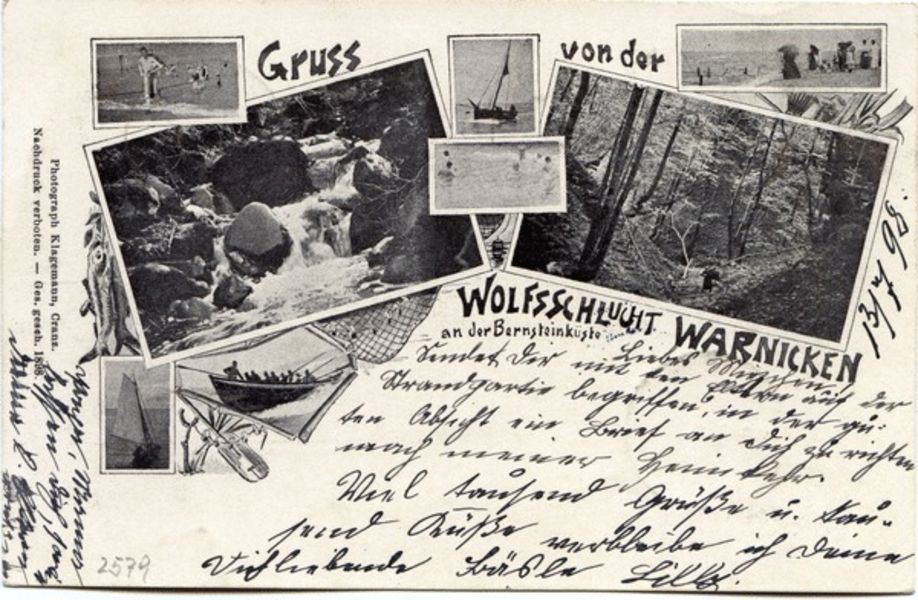 Gruss von der
WOLFSSCHLUCHT
an der Bernsteinküste
WARNICKEN
Photograph Klagemann, Cranz.
Nachdruck verboten. — Ges. gesch. 1898
Liebes
Sendet Dir mit den Eltern auf der
Strandpartie begriffen, in der gu-
ten Absicht ein Brief an Dich zu richten
nach meiner Heimkehr.
Viel tausend Grüße u. tau-
send Küße verbleibe ich Deine
Dichliebende Bäsle
2579